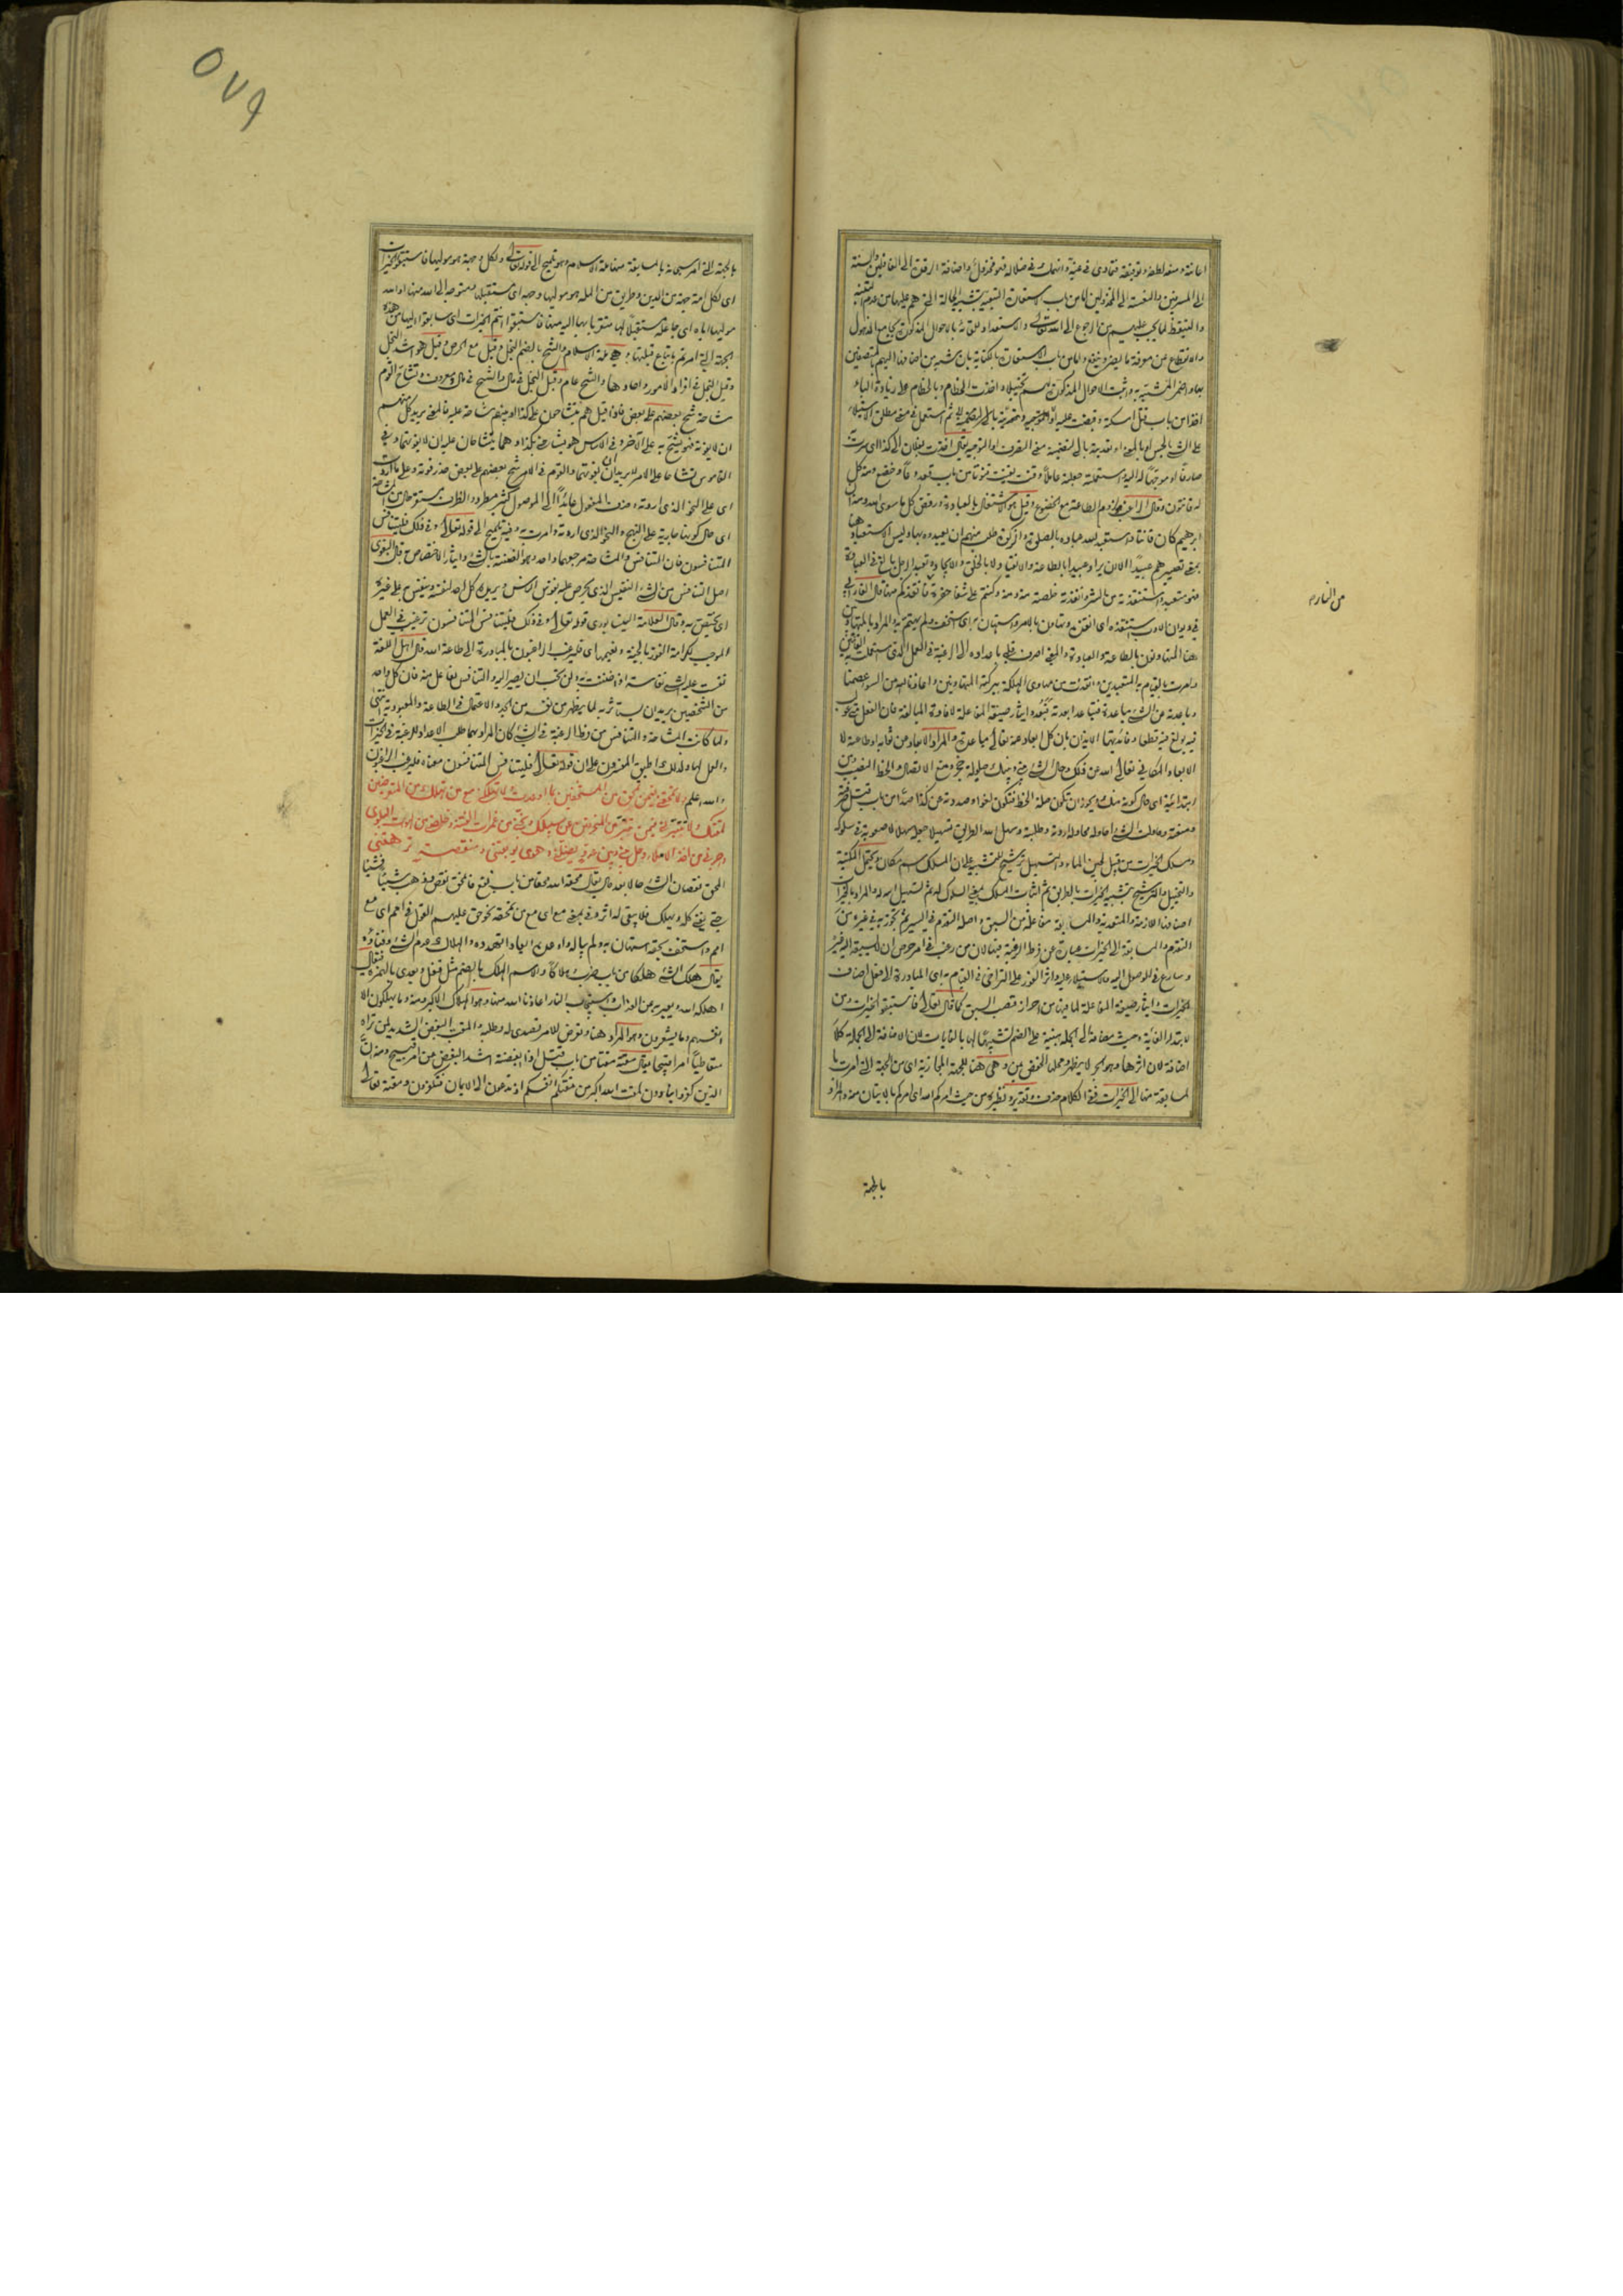 اعانته ومنعه لطفه وتوفيقه فتمادى في غيه وانهمك في ضلاله فهو مخذول واضافة الرقدة الى الغافلين والسنة
الى المسرفين والنعسة الى المخذولين اما من باب الاستعارة التبعية بتشبيه الحالة التي هم عليها من عدم التنبه
والتيقظ لما يجب عليهم من الرجوع الى الله تعالى والاستعداد للقائه بالاحوال المذكورة بجامع الذهول
والانقطاع عن معرفة ما يضر وينفع واما من باب الاستعارة بالكناية بان شبه من اضافها اليهم بالمتصفين
بها واضمر التشبيه واثبت الاحوال المذكورة لهم تخييلا واخذت الخطام وبالخطام على زيادة الباء
اخذا من باب قتل امسكته وقبضت عليه
على الشيء
صارفا او موجها له اليه واستعملته جعلته عاملا وقنت يقنت قنوتا من باب قعد دعا وخضع ومنه كل
له قانتون وقال الراغب هو لزوم الطاعة مع الخضوع وقيل هو الاشتغال بالعبادة ورفض كل ما سوى الله ومنه ان
ابرهيم كان قانتا واستعبد الله عباده بالصلوة والزكوة طلب منهم ان يعبدوه بها وليس الاستعباد هنا
بمعنى تصييرهم عبيدا اذ لا يراد عبيدا بالطاعة والانقياد لا بالخلق والايجاد وتعبد الرجل بالغ في العبادة
فهو متعبد واستنقذته من الشر وانقذته خلصته منه ومنه وكنتم على شفا حفرة من النار فانقذكم منها قال الفارابي
في ديوان الادب استنقذه اي انقذه وتهاون بالامر واستهان به اي استخف ولم يهتم به والمراد بالمتهاونين
هنا المتهاونون بالطاعة والعبادة والمعنى اصرف قلبي باعداده الى الرغبة في العمل الذي استعملت به القانتين
وامرت بالقيام به المتعبدين وانقذت من مهاوي الهلكة ببركته المتهاونين واعاذنا الله من السوء وعصمنا
وباعدته عن الشيء مباعدة فتباعد ابعدته فبعد وايثار صيغة المفاعلة لافادة المبالغة فان الفعل متى غولب
فيه بولغ فيه قطعا
الابعاد المكاني تعالى الله عن ذلك وحال الشيء بيني وبينك حيلولة حجز ومنع الاتصال والحظ النصيب ومن
ابتدائية اي حال كونه منك ويجوز ان تكون صلة الحظ فتكون لغوا وصددته عن كذا صدا من باب قتل
ومنعته وحاولت الشيء احاوله محاولة اردته وطلبته وسهل الله الطريق تسهيلا جعله سهلا لا صعوبة في سلوكه
ومسلك الخيرات من قبيل لجين الماء والتسهيل ترشيح للتشبيه على ان المسلك اسم مكان ويحتمل المكنية
والتخييل والترشيح بتشبيه الخيرات بالطريق ثم اثبات المسلك بمعنى السلوك له ثم التسهيل
اصنافها اللازمة والمتعدية والمسابقة مفاعلة من السبق واصله التقدم في السير ثم تجوز به في غيره من
التقدم والمسابقة الى الخيرات عبارة عن فرط الرغبة فيها لان من رغب في امر حرص ان لا يسبقه اليه غيره
وسارع في الوصول اليه والاستيلاء عليه واثر الفور على التراخي في القيام به اي المبادرة الى فعل اصناف
الخيرات وايثار صيغة المفاعلة لما فيها من احراز قصب السبق كما قال تعالى فاستبقوا الخيرات ومن
لابتداء الغاية وحيث مضافة الى الجملة مبنية على الضم تشبيها لها بالغايات لان الاضافة الى الجملة كلا
اضافة لان اثرها وهو الجر لا يظهر ومحلها الخفض بمن وهي هنا للجهة المجازية اي من الجهة التي امرت با
لمسابقة منها الى الخيرات ففي الكلام حذف وتقدير ونظيره من حيث امركم الله اي امركم بالاتيان منه والمراد
بالجهة
من النار م
٥٧٩
بالجهة التي امر سبحانه بالمسابقة منها ملة الاسلام وهو تلميح الى قوله تعالى ولكل وجهة هو موليها فاستبقوا الخيرات
اي لكل امة جهة من الدين وطريق من الملة هو موليها وجهه اي مستقبلها ومتوجه الى الله منها او الله
موليها اياه اي جاعله مستقبلا لها متقربا بها اليه سبحانه فاستبقوا انتم الخيرات اي سابقوا اليها من هذه
الجهة التي امرتم باتباع قبلتها وهي ملة الاسلام والشح بالضم البخل وقيل مع الحرص وقيل هو اشد البخل
وقيل البخل في افراد الامور واحادها والشح عام وقيل البخل في مال والشح في مال ومعروف وتشاح القوم
مشاحة شح بعضهم على بعض فاذا قيل هم يتشاحون على كذا او بينهم مشاحة عليه فالمعنى يريد كل منهم
ان لا يفوته فهو يشح به على الاخر وفي الاساس هو يشاحني بكذا وهما يتشاحان عليه ان لا يفوتهما وفي
القاموس تشاحا على الامر لا يريدان ان يفوتهما والقوم في الامر شح بعضهم على بعض حذر فوته وعلى ما اردت
اي على النحو الذي اردته وحذف المفعول عائدا الى الموصول كثير مطرد والظرف مستقر حال من المشاحة
اي حال كونها جارية على النهج والنحو الذي اردته وامرت به وفيه تلميح الى قوله تعالى وفي ذلك فليتنافس
المتنافسون فان التنافس والمشاحة مرجوعهما واحد وهو الضنة بالشيء وايثار الاختصاص به قال البغوي
اصل التنافس من الشيء النفيس الذي يحرص عليه نفوس الناس ويريده كل احد لنفسه وينفس به على غيره
اي يختص به وقال العلامة النيسابوري قوله تعالى وفي ذلك فليتنافس المتنافسون ترغيب في العمل
الموجب لكرامة الفوز بالجنة ونعيمها اي فليرغب الراغبون بالمبادرة الى طاعة الله وقال اهل اللغة
نفست عليه الشيء نفاسة اذا ضننت به ولن تحب ان يصير اليه والتنافس تفاعل منه فان كل واحد
من الشخصين يريد ان يستاثر به لما يظهر من نفسه من الجد والاعتمال في الطاعة والعبودية انتهى
ولما كانت المشاحة والتنافس من فرط الرغبة في الشيء كان المراد بهما طلب الاعداد للرغبة في الخيرات
والعمل لها ولذلك اطبق المفسرون على ان قوله تعالى فليتنافس المتنافسون معناه فليرغب الراغبون
والله اعلم ولا تمحقني فيمن تمحق من المستخفين بما اوعدت ولا تهلكني مع من تهلك من المتعرضين
لمقتك ولا تتبرني فيمن تتبر من المنحرفين عن سبيلك ونجني من غمرات الفتنة وخلصني من لهوات البلوى
واجرني من اخذ الاملاء وحل بيني وبين عدو يضلني وهوى يوبقني ومنقصة ترهقني
المحق نقصان الشيء حالا بعد حال يقال محقه الله محقا من باب نفع فانمحق نقص وذهب شيئا فشيئا
حتى يفنى كله ويهلك فلا يبقى له اثر وفي بمعنى مع اي مع من تمحقه نحو حق عليهم القول في امم اي مع
امم واستخف بحقه استهان به ولم يبال به واوعدته ايعادا تهدده والهلاك عدم الشيء وفناؤه
يقال هلك الشيء هلكا من باب ضرب وهلاكا والاسم الهلك بالضم مثل قفل ويعدى بالهمزة فيقال
اهلكه الله ويعبر به عن العذاب واستيجاب النار اعاذنا الله منها وهو الهلاك الاكبر ومنه وما يهلكون الا
انفسهم وما يشعرون وهو المراد هنا وتعرض للامر تصدى له وطلبه والمقت البغض الشديد لمن تراه
متعاطيا امرا قبيحا يقال مقته مقتا من باب قتل اذا ابغضه اشد البغض عن امر قبيح ومنه ان
الذين كفروا ينادون لمقت الله اكبر من مقتكم انفسكم اذ تدعون الى الايمان فتكفرون ومقته تعالى